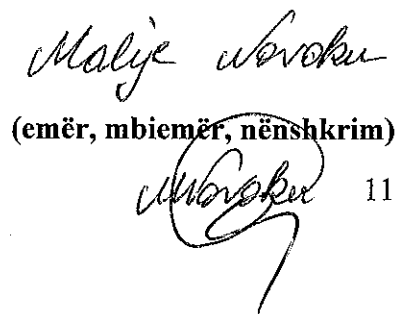 Malije Novoku
(emër, mbiemër, nënshkrim)
MNovoku 11